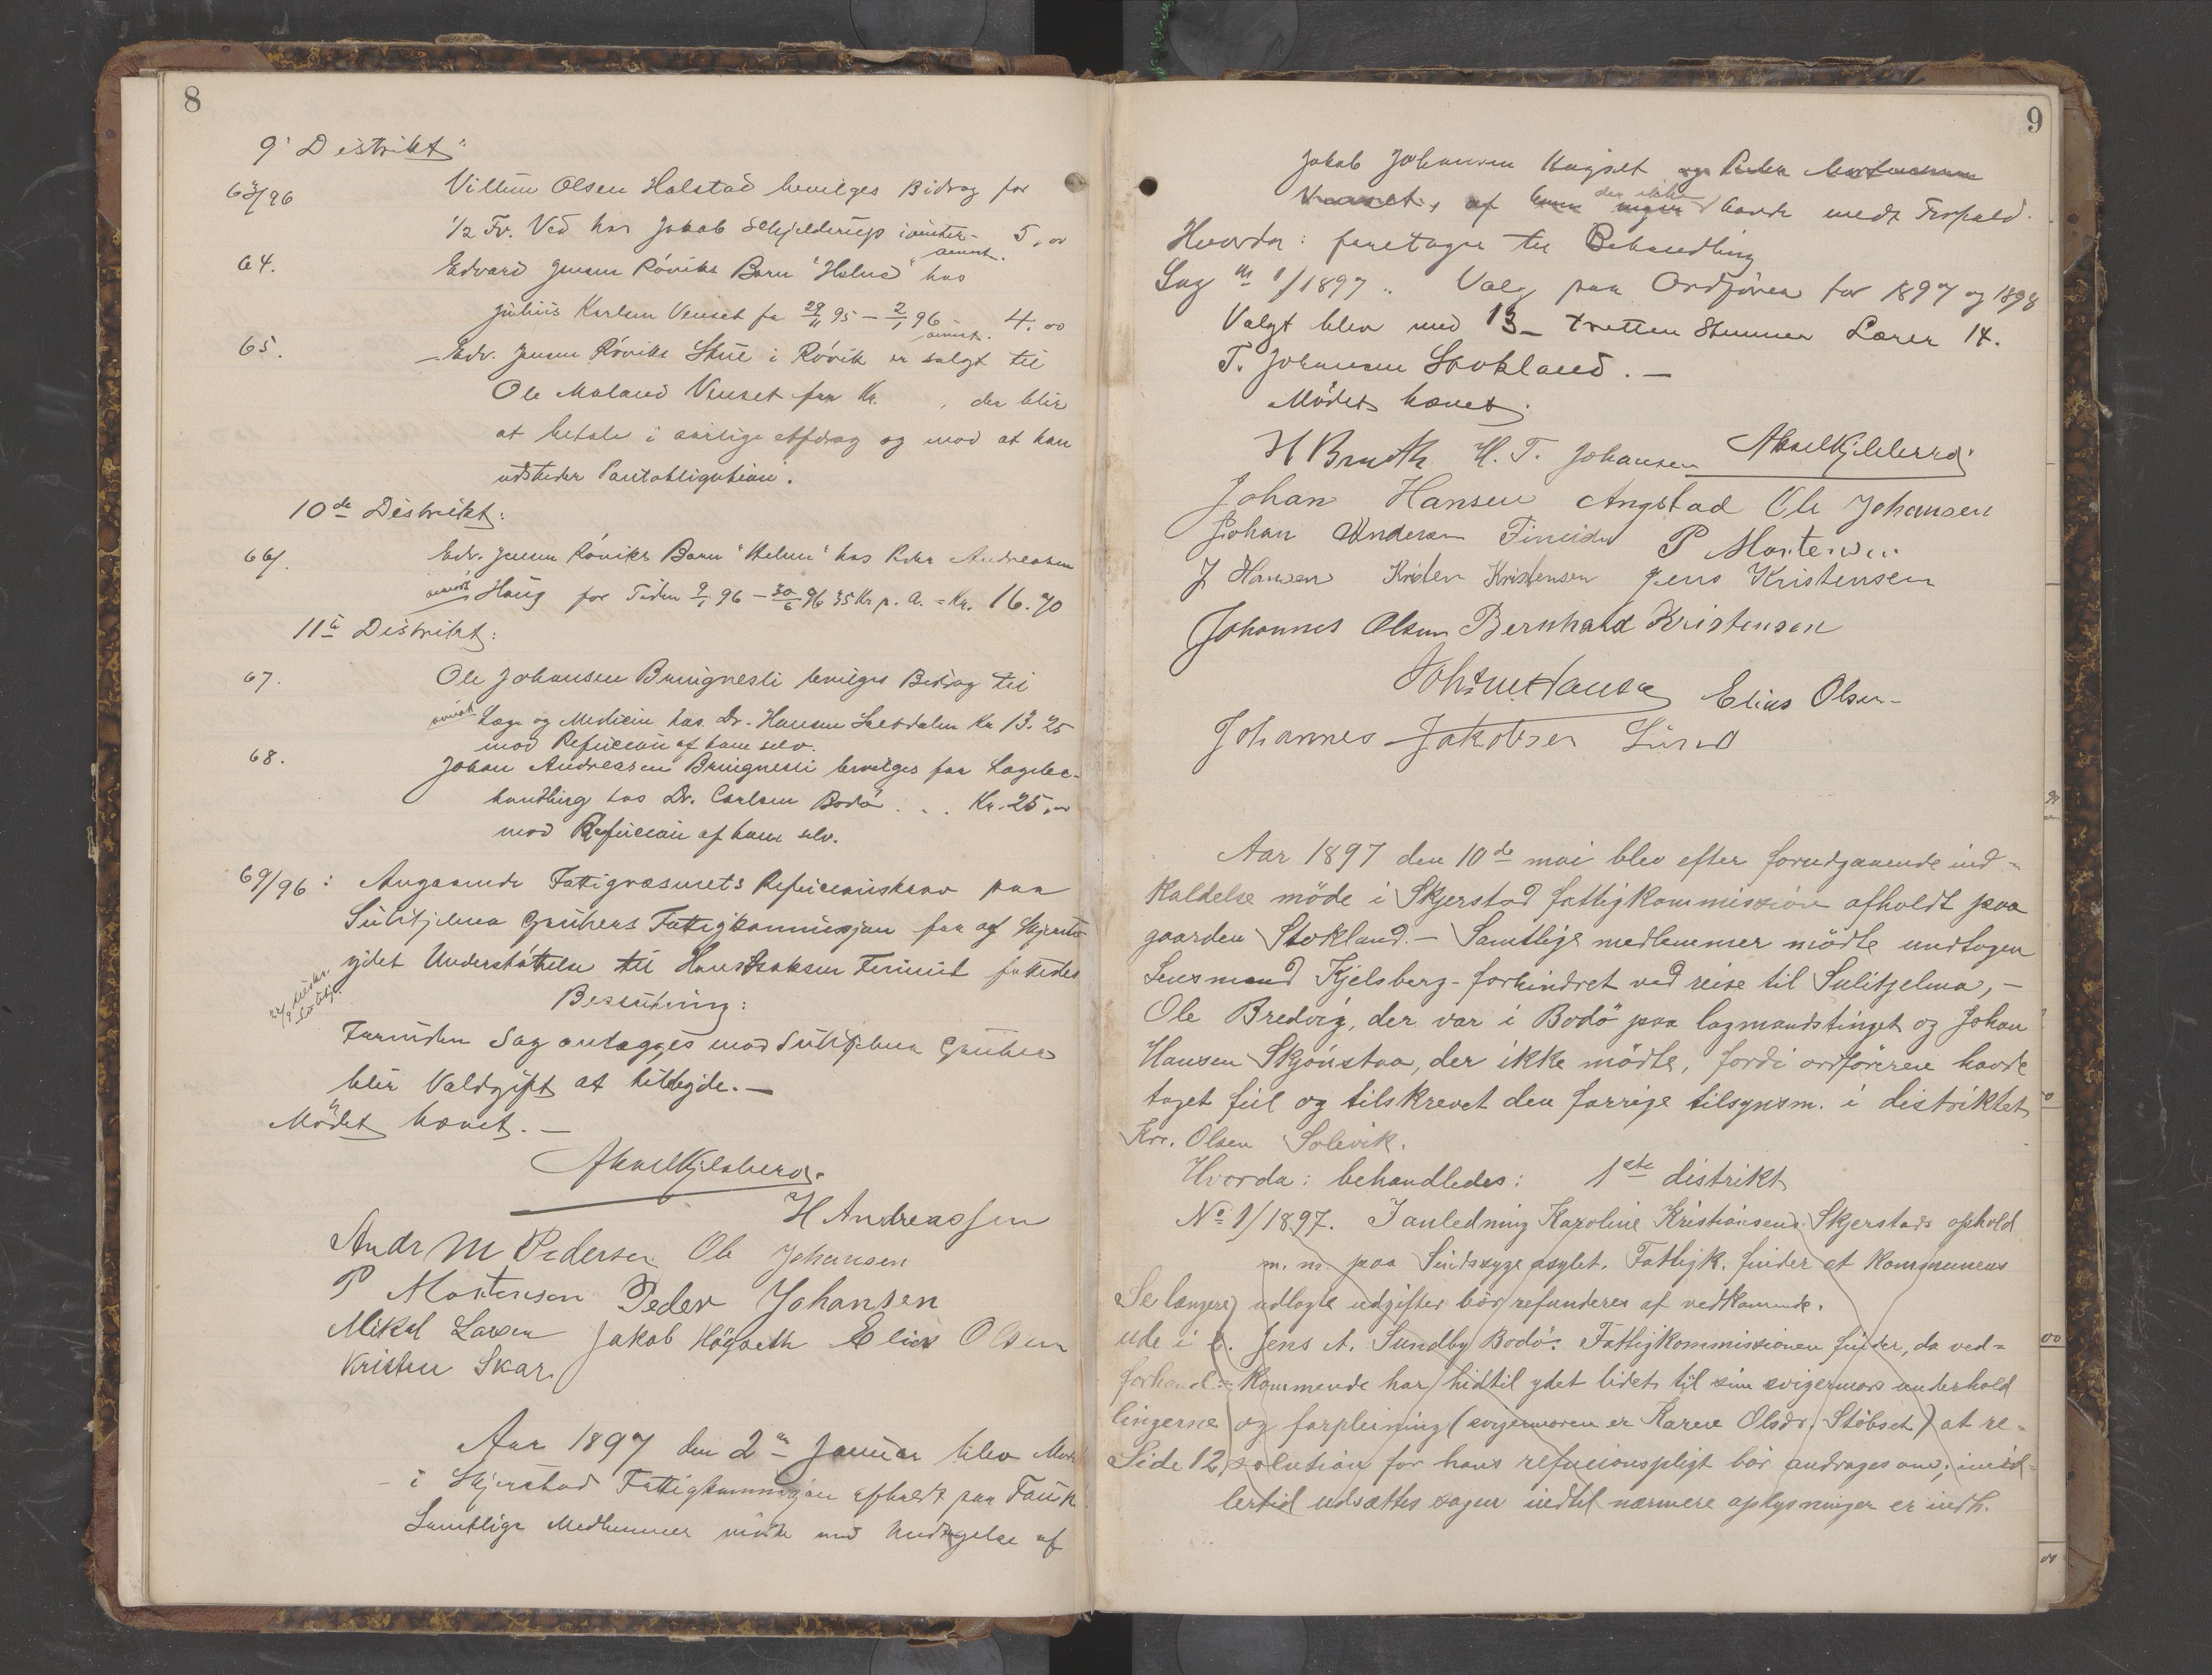 8
9' Distrikt:
63/96 Villum Olsen Halstad bevilges Bidrag for
1/2 Fv. Ved hos Jakob Schjelderup 5,00
anvist.
64. Edvard Jensen Röviks Barn "Helma" hos
Julius Karlsen Venset fra 29/11 95 – 2/1 96 4.00
anvist.
65. Edv. Jensen Röviks Stue i Rövik er solgt til
Ole Moland Venset for Kr. , der blir
at betale i aarlige Afdrag og mod at han
udsteder Pantobligation.
10de Distrikt:
66. Edv. Jensen Röviks Barn "Helma" hos Peder Andreasen
anvist Haug for Tiden 2/1 96 – 30/6 96 35 Kr p. A. = Kr. 16.70
11te Distrikt:
67. Ole Johansen Bringsli bevilges Bidrag til
anvist Læge og Medicin hos Dr. Hansen Saltdalen Kr 13.25
mod Refusion af ham selv.
68. Johan Andreasen bevilges for Lægebe-
handling hos Dr. Carlsen Bodö . . . Kr. 25,00
mod Refusion af ham selv.
69/96: Angaaende Fattigvæsenets Refusionskrav paa
Sulitjelma Grubers Fattigkommisjon for af Skjerstad
ydet Understöttelse til Hans Isaksen fattedes
Beslutning:
Forinden Sag anlægges mod Sulitjelma Gruber
blir Voldgift at tilbyde.—
Mödet hævet.—
Aksel Kjelsberg.
H Andreassen
Andr M Pedersen Ole Johansen
P Mortensen Peder Johansen
Mikal Larsen Jakob Högseth Elias Olsen
Kristen Skar.
Aar 1897 den 2den Januar blev Möde
i Skjerstad Fattigkommisjon afholdt paa Fauske
Samtlige Medlemmer mödte med Undtagelse af
9
Jakob Johansen Høgset og Peder Mortensen
Venset, af der ikke havde medt Forfald.
Hvorda: foretages til Behandling
Sag no 1/1897. Valg paa Ordförer for 1897 og 1898
Valgt blev med 13 – tretten Stemmer Lærer H.
T. Johansen Stokland.—
Mödet hævet.
H Bredvik H. T. Johansen Aksel Kjelsberg.
Johan Hansen Angstad Ole Johansen
Johan Andersen P Mortensen
J Hansen Kristen Kristensen Jens Kristensen
Johannes Olsen Bernhard Kristensen
Johan Hansen Elias Olsen
Johannes Jakobsen Lund
Aar 1897 den 10de mai blev efter forudgaaende ind-
kaldelse möde i Skjerstad fattigkommission afholdt paa
gaarden Stokland.— Samtlige medlemmer mödte undtagen
Lensmand Kjelsberg - forhindret ved reise til Sulitjelma, —
Ole Bredvig, der var i Bodö paa lagmandstinget og Johan
Hansen Skjönstaa, der ikke mödte, fordi ordföreren havde
taget feil og tilskrevet den forrige tilsynsm. i distriktet
Kr. Olsen Solvik.
Hvorda: behandledes: 1ste distrikt
No 1/1897. I anledning Karoline Kristiansens Skjerstads ophold
m. m. paa Sindssygeasylet. Fattigk. finder at kommunens
udlagte udgifter bör refunderes af vedkommende.
Se længere
ude i
forhand-
lingerne
Side 12
Jens A. Sundby Bodö: Fattigkommissionen finder, da ved-
kommende har hidtil ydet lidet til sin svigermors underhold
og forpleining (svigermoren er Karen Olsdr. Stöbset) at re-
solution for hans refusionspligt bör andrages om; imid-
lertid udsættes sagen indtil nærmere oplysninger er indh.